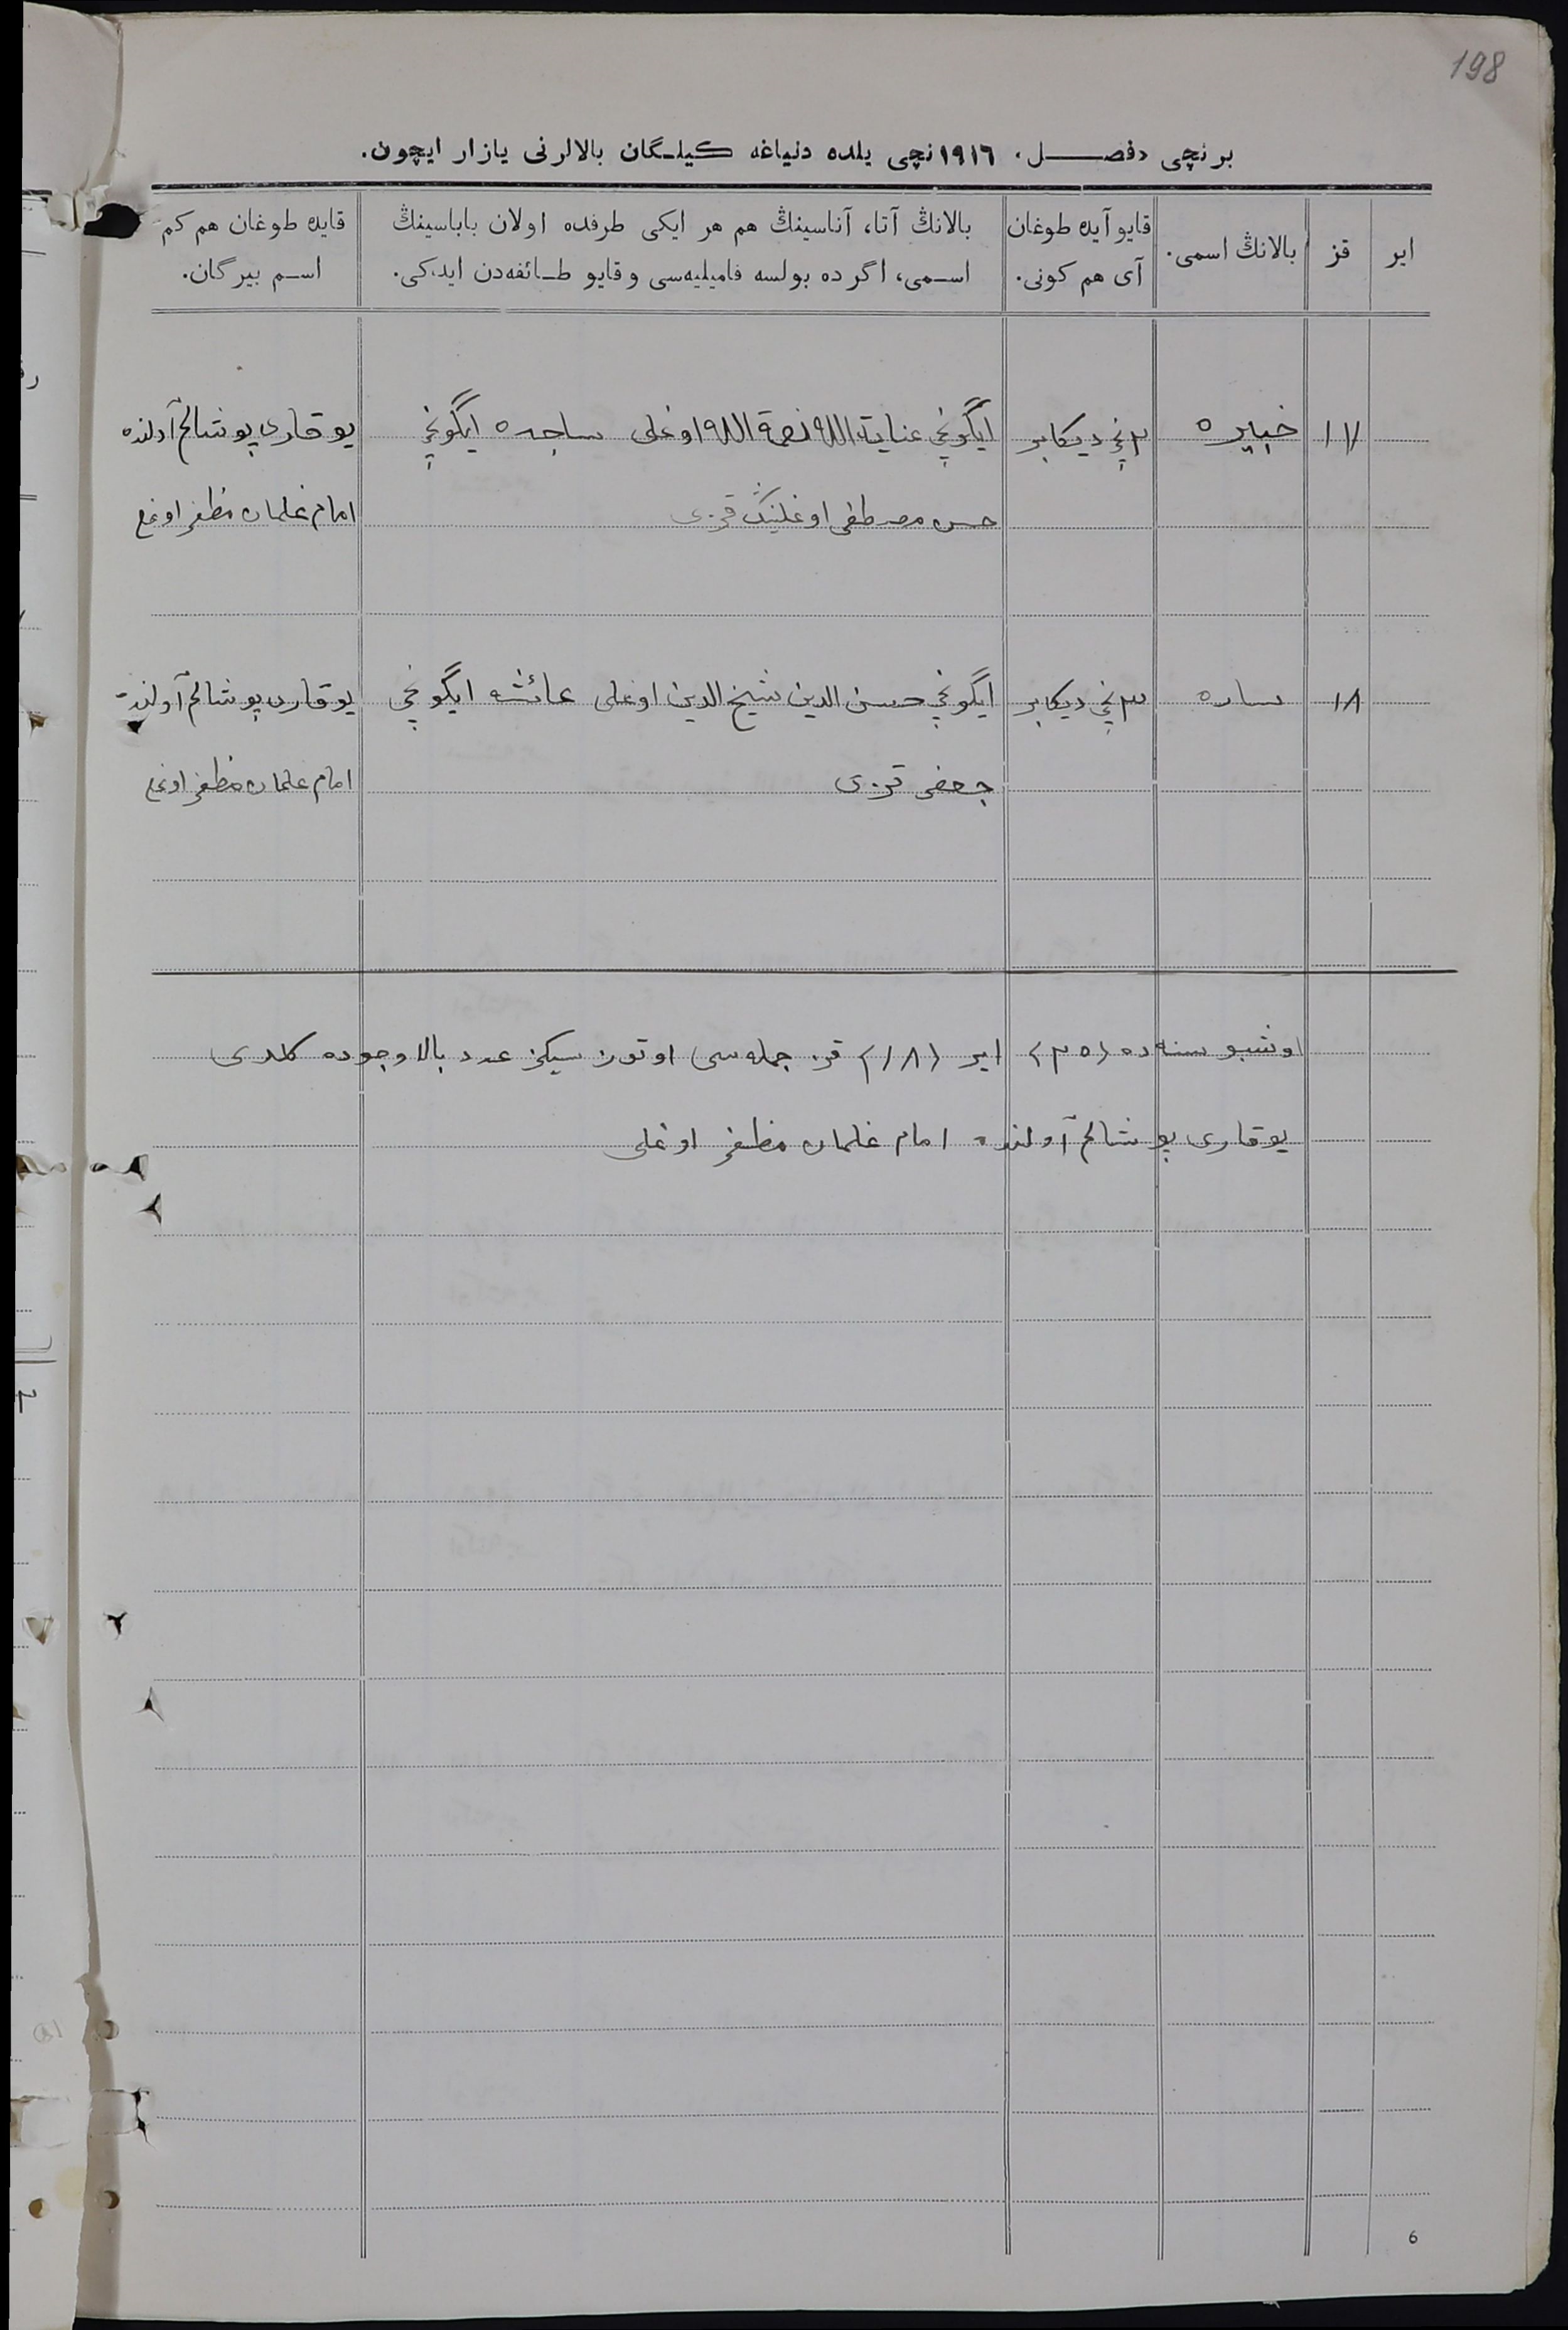 198
برنچی «فصل» ۱۹۱٦نچی یلده دنیاغه کیلگان بالالرنی یازار ایچون.
ایر
قز
بالانڭ اسمی.
قایو آیده طوغان
آی هم کونی.
بالانڭ آتا، آناسینڭ هم هر ایکی طرفده اولان باباسینڭ
اسمی، اگرده بولسه فامیلیه‌سی وقایو طائفه‌دن ایدکی.
قایده طوغان هم کم
اسم بیرگان.
۱۷ خبیره ۲نچی دیکابر ایگونچی عنایة الله نعمة الله اوغلی ساجده ایگونچی یوقاری پوشالم آولنده
حسن مصطفی اوغلینڭ قزی امام غلمان مظفر اوغلی
۱۸ ساره ۳نچی دیکابر ایگونچی حسن الدین شیخ الدین اوغلی عائشه ایگونچی یوقاری پوشالم آولنده
جعفر قزی امام غلمان مظفر اوغلی
اوشبو سنه‌ده (۲۰) ایر (۱۸) قز جمله‌سی اوتوز سیکز عدد بالا وجوده کلدی
یوقاری پوشالم آولنده امام غلمان مظفر اوغلی
6